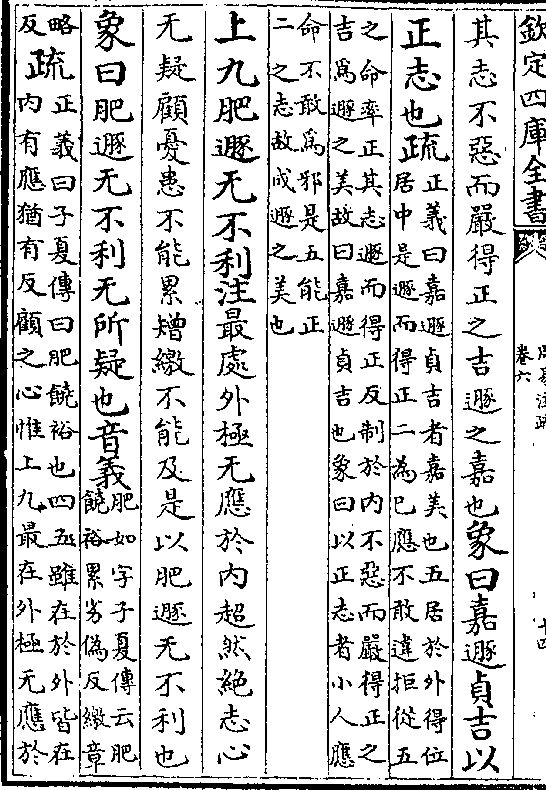 欽定四庫全書
周易注疏
卷六
十四
其志不惡而嚴得正之吉遯之嘉也象曰嘉遯貞吉以
正志也疏
正義曰嘉遯貞吉者嘉美也五居於外得位
居中是遯而得正二為已應不敢違拒從五
之命率正其志遯而得正反制於内不惡而嚴得正之
吉爲遯之美故曰嘉遯貞吉也象曰以正志者小人應
命不敢爲邪是五能正
二之志故成遯之美也
上九肥遯无不利注最處外極无應於内超然絶志心
无疑顧憂患不能累矰繳不能及是以肥遯无不利也
象曰肥遯无不利无所疑也音義
肥如字子夏傳云肥
饒裕累劣偽反繳章
略
反
疏
正義曰子夏傳曰肥饒裕也四五雖在於外皆在
内有應猶有反顧之心惟上九最在外極无應於